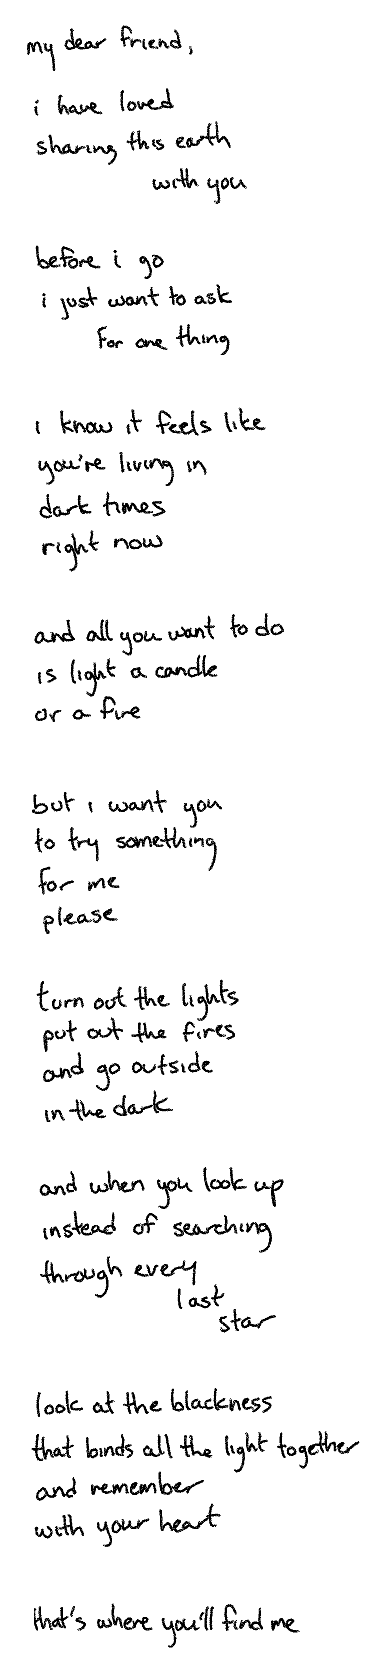 my dear friend,
i have loved
sharing this earth
with you
before i go
i just want to ask
for one thing
i know it feels like
you're living in
dark times
right now
and all you want to do
is light a candle
or a fire
but i want you
to try something
for me
please
turn out the lights
put out the fires
and go outside
in the dark
and when you look up
instead of searching
through every
last
star
look at the blackness
that binds all the light together
and remember
with your heart
that's where you'll find me